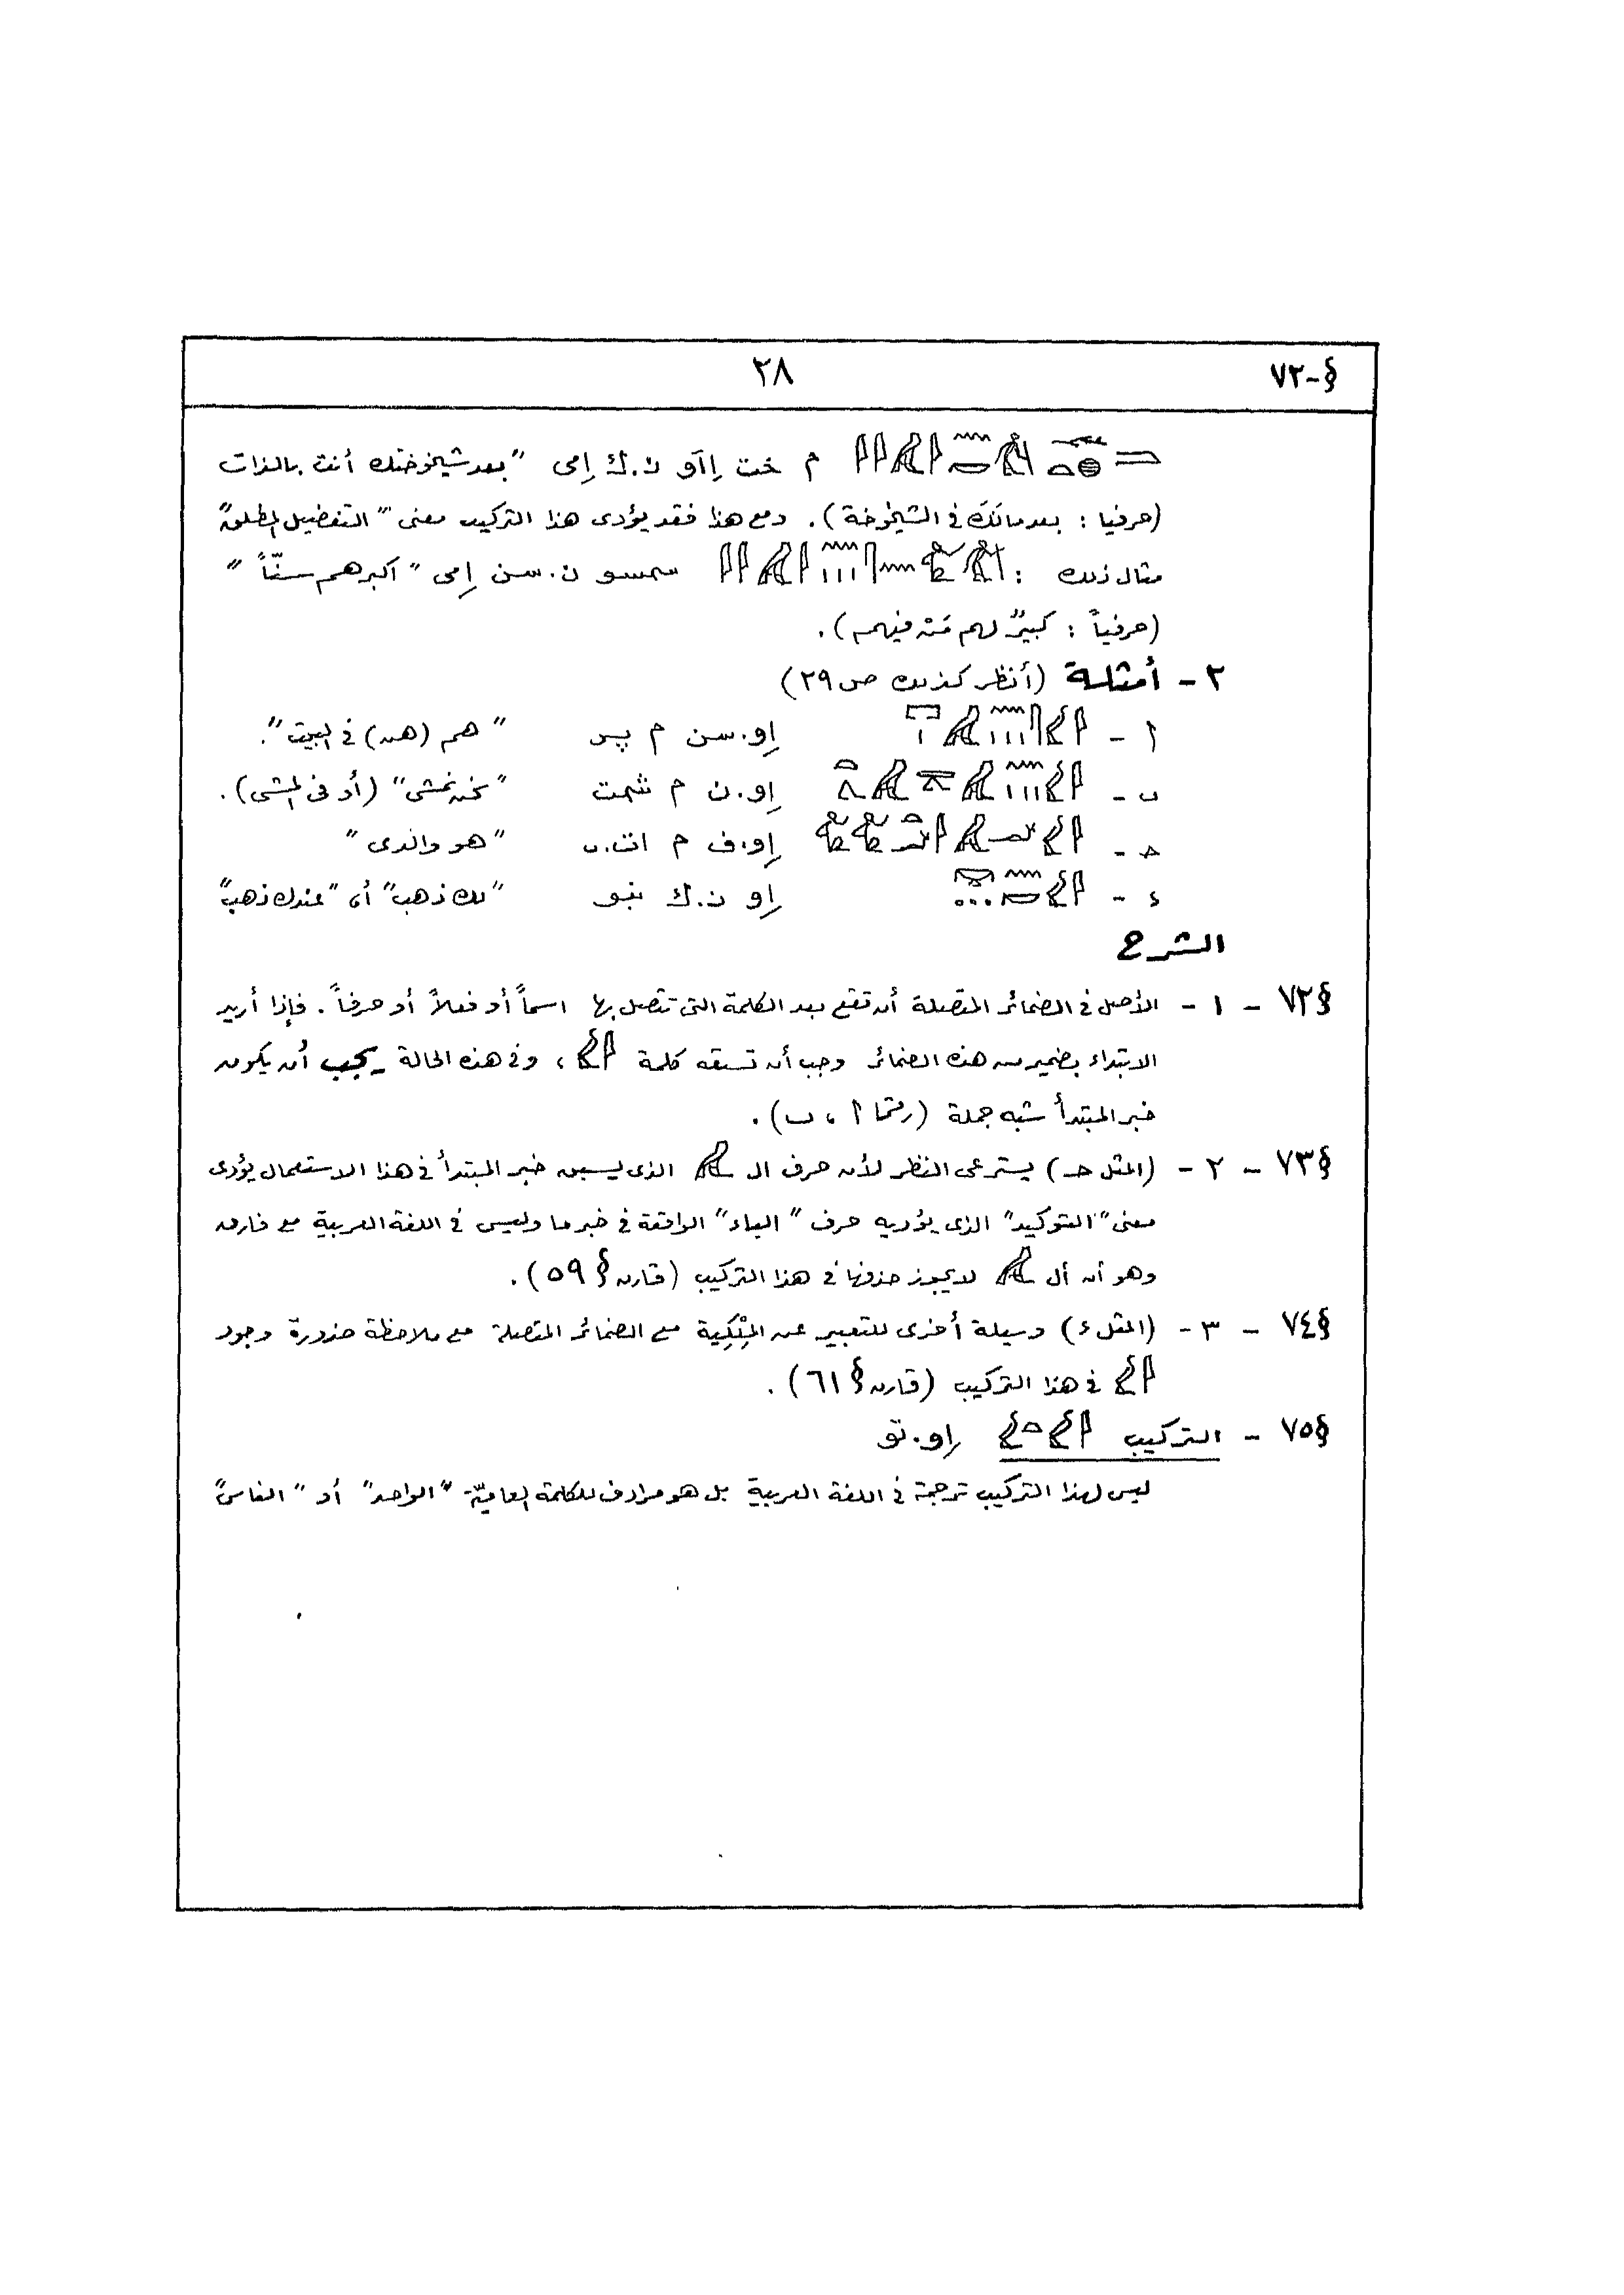 §-٧٢ ٢٨
م خت إاآو ن.ك إمى "بعد شيخوختك أنت بالذات
(حرفيا : بعد مالَكَ فى الشيخوخة). ومع هذا فقد يؤدى هذا التركيب معنى "التفضيل المطلق"
مثال ذلك : سمسو ن.سن إمى "أكبرهم سنّاً"
(حرفياً : كبيرٌ لهم مَنْ فيهم).
٢- أمثلة (أنظر كذلك ص ٢٩)
ا - إو.سن م پر "هم (هن) فى البيت".
ب - إو.ن م شمت "نحن نمشى" (أو فى المشى).
حـ - إو.ف م ات.ى "هو والدى"
ء - إو ن.ك نبو "لك ذهب" أى "عندك ذهب"
الشرح
§٧٢ - ١- الأصل فى الضمائر المتصلة أن تقع بعد الكلمة التى تتصل بها اسماً أو فعلاً أو حرفاً. فإذا أريد
الابتداء بضمير من هذه الضمائر وجب أن تسبقه كلمة ، وفى هذه الحالة يجب أن يكون
خبر المبتدأ شبه جملة (رقما ا ، ب).
§٧٣ - ٢- (المثل حـ) يسترعى النظر لأن حرف ال الذى يسبق خبر المبتدأ فى هذا الاستعمال يؤدى
معنى "التوكيد" الذى يؤديه حرف "الباء" الواقعة فى خبر ما وليس فى اللغة العربية مع فارق
وهو أن أل لا يجوز حذفها فى هذا التركيب (قارن § ٥٩).
§٧٤ - ٣- (المثل ء) وسيلة أخرى للتعبير عن المِلْكِية مع الضمائر المتصلة مع ملاحظة ضرورة وجود
فى هذا التركيب (قارن § ٦١).
§٧٥ - التركيب إو.تو
ليس لهذا التركيب ترجمة فى اللغة العربية بل هو مرادف للكلمة العاميّة "الواحد" أو "الناس"